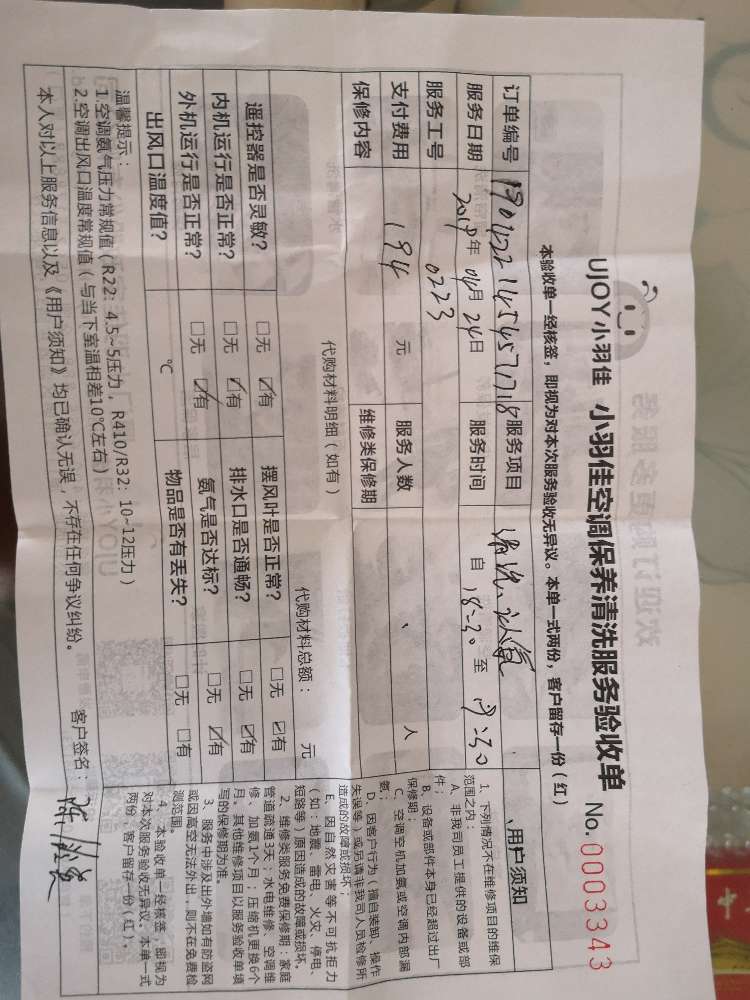 UJOY小羽佳 小羽佳空调保养清洗服务验收单 No. 0003343
本验收单一经核签，即视为对本次服务验收无异议。本单一式两份，客户留存一份（红）
订单编号 服务项目 清洗、
服务日期 2019年 04月 24日 服务时间 自 18:30 至
服务工号 0223
支付费用 194 元 服务人数 人
保修内容 维修类保修期
代购材料明细（如有） 代购材料总额： 元
遥控器是否灵敏？ □无 ☑有 摆风叶是否正常？ □无 ☑有
内机运行是否正常？ □无 ☑有 排水口是否通畅？ □无 ☑有
外机运行是否正常？ □无 ☑有 氨气是否达标？ □无 ☑有
出风口温度值？ ℃ 物品是否有丢失？ □无 □有
温馨提示：
1.空调氨气压力常规值（R22：4.5~5压力，R410/R32：10~12压力）
2.空调出风口温度常规值（与当下室温相差10℃左右）
本人对以上服务信息以及《用户须知》均已确认无误，不存在任何争议纠纷。 客户签名：
用户须知
1、下列情况不在维修项目的维保
范围之内：
A、非我司员工提供的设备或部
件；
B、设备或部件本身已经超过出厂
保修期；
C、空调空机加氨或空调内部漏
氨；
D、因客户行为（擅自装卸、操作
失误等）或另请非我司人员检修所
造成的故障或损坏；
E、因自然灾害等不可抗拒力
（如：地震、雷电、火灾、停电、
短路等）原因造成的故障或损坏。
2、维修类服务免费保修期：家庭
管道疏通3天；水电维修、空调维
修、加氨1个月；压缩机更换6个
月。其他维修项目以服务验收单填
写的保修期为准。
3、服务中涉及出外墙如有防盗网
或因高空无法外出，则不在免费检
测范围。
4、本验收单一经核签，即视为
对本次服务验收无异议。本单一式
两份，客户留存一份（红）。